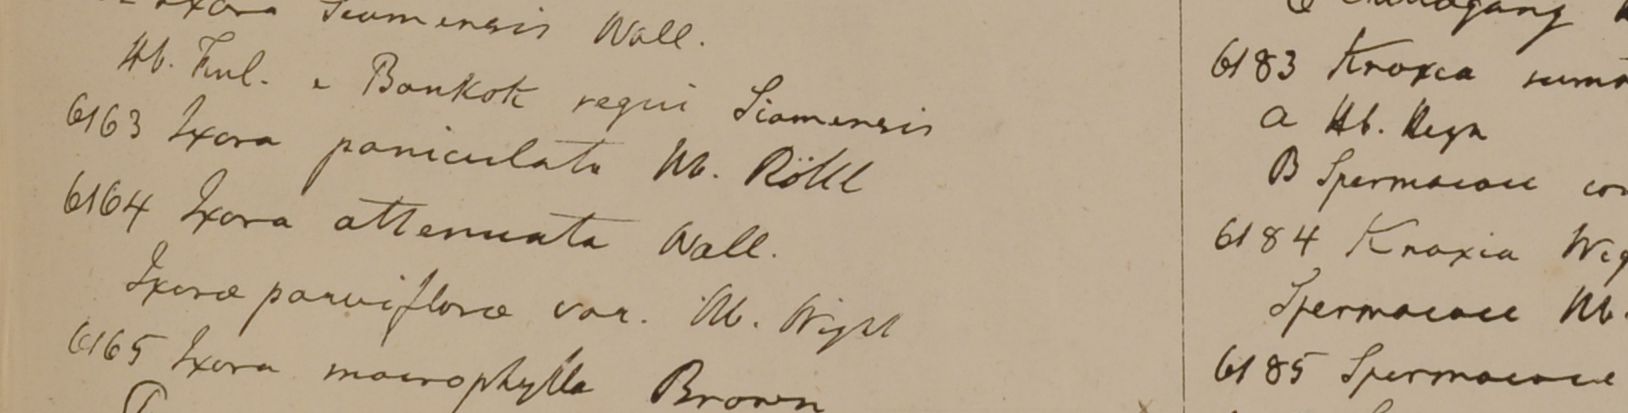 Ixora Siamensis Wall.
Hb. Finl. e Bankok regni Siamensis
6163 Ixora paniculata Hb. Röttl
6164 Ixora attenuata Wall.
Ixora parviflora var. Hb. Wight
6165 Ixora macrophylla Brown
6183 Knoxia
a Hb. Heyn
B Spermacoce
6184 Knoxia
Spermacoce Hb.
6185 Spermacoce